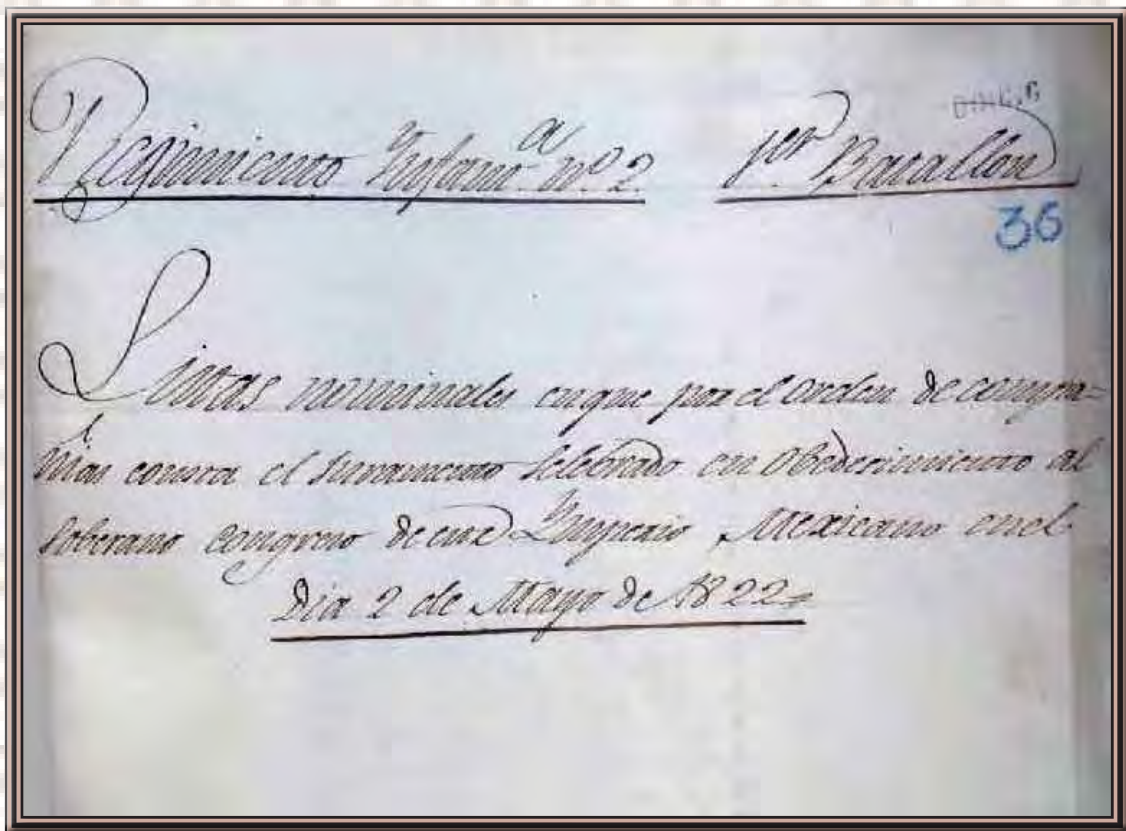 Regimiento Infant.ª nº 2. 1er Batallon
36
Listas nominales enque por el Orden de compa-
ñias consta el Juramento Selebrado en Obedecimiento al
Soberano Congreso de este Imperio Mexicano enel
Dia 2 de Mayo de 1822